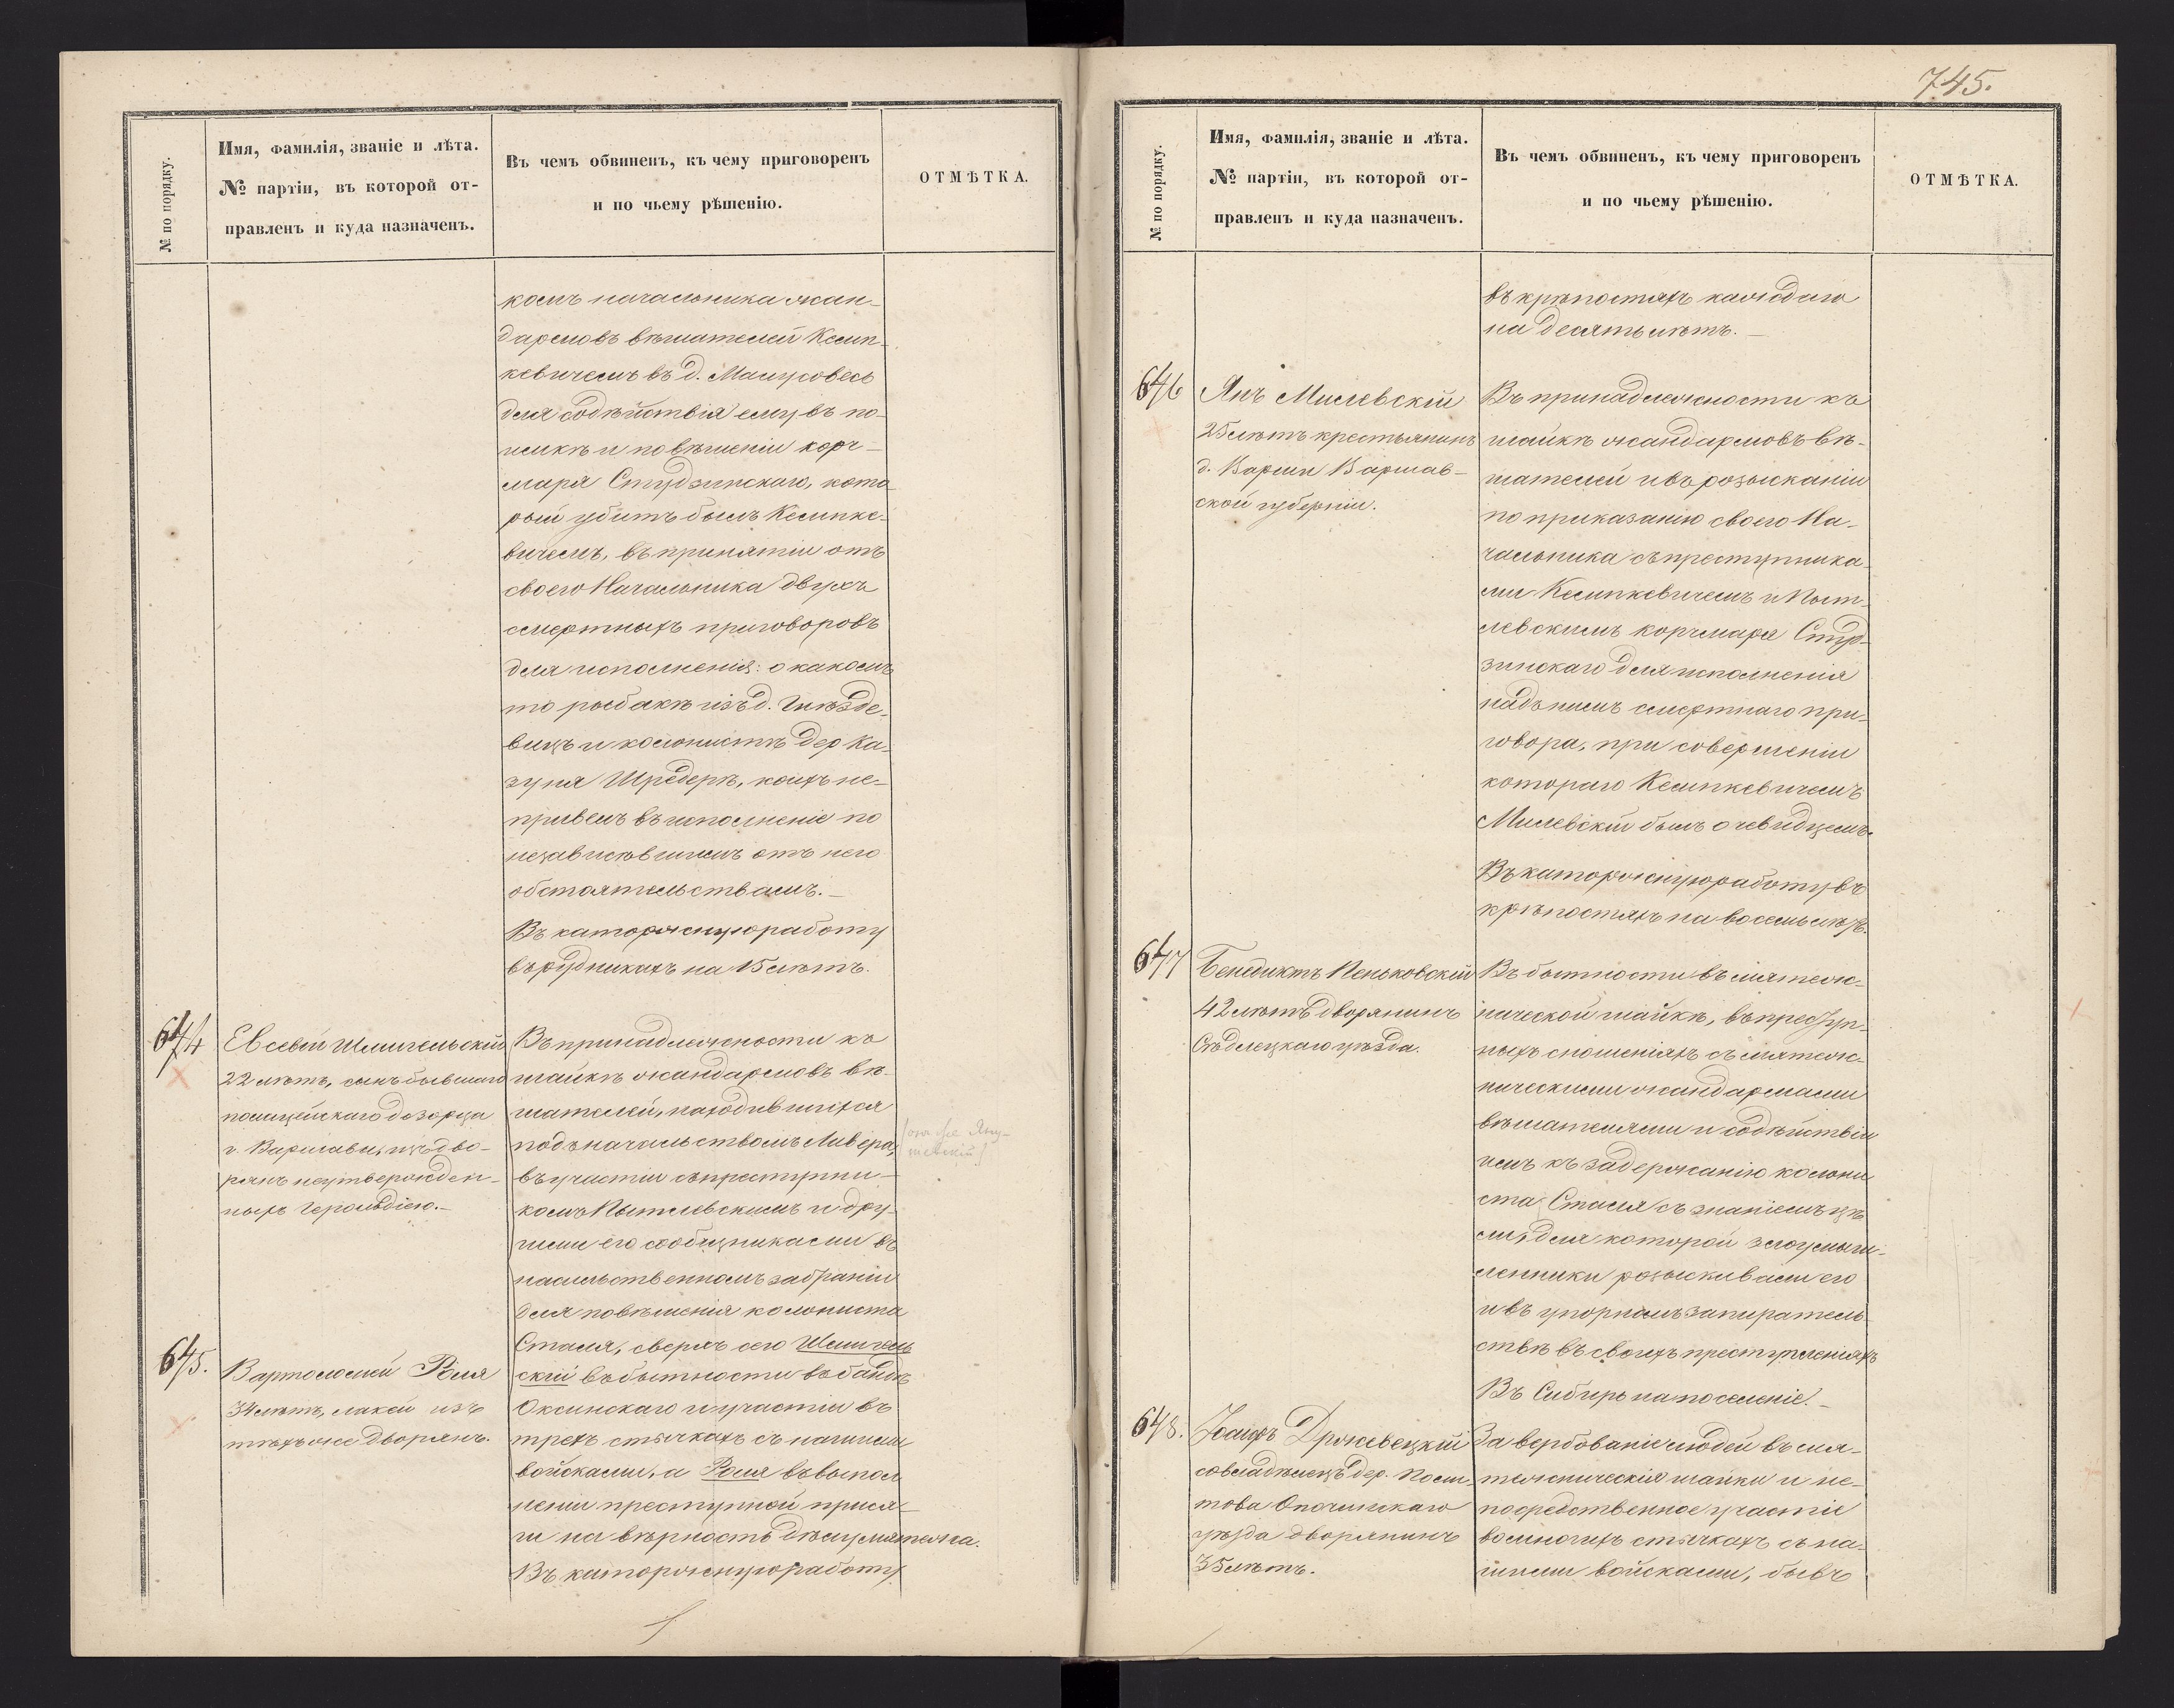 745.
№ по порядку.
Имя, фамилія, званіе и лѣта.
№ партіи, въ которой от-
правленъ и куда назначенъ.
Въ чемъ обвиненъ, къ чему приговоренъ
и по чьему рѣшенію.
ОТМѢТКА.
комъ начальника жан-
дармовъ вѣшателей Кемп-
кевичемъ въ д. Мацуовесь
для содѣйствія ему въ по-
имкѣ и повѣшеніи корч-
маря Студзинскаго, кото
рый убитъ былъ Кемпке-
вичемъ, въ принятіи отъ
своего Начальника двухъ
смертныхъ приговоровъ
для исполненія: о какомъ
то рыбакѣ изъ д. Гнѣзде-
вицъ и колонистѣ дер Ка-
зуня Шредерѣ, коихъ не-
привелъ въ исполненіе по
независѣвшимъ отъ него
обстоятельствамъ.—
Въ каторжную работу
въ рудникахъ на 15 лѣтъ.
644
Евсевій Шмигельскій
22 лѣтъ, сынъ бывшаго
полицейскаго дозорца
г. Варшавы, изъ дво-
рянъ неутвержден-
ныхъ Герольдіею.—
Въ принадлежности къ
шайкѣ жандармовъ вѣ-
шателей, находившихся
подъ начальствомъ Ливера,
въ участіи съ преступни-
комъ Пытлевскимъ и дру-
гими его сообщниками въ
насильственномъ забраніи
для повѣшенія колониста
Сталя, сверхъ сего Шмигель
скій въ бытности въ бандѣ
Оксинскаго и участіи въ
трехъ стычкахъ съ нашими
войсками, а Роля въ выпол
неніи преступной прися-
ги на вѣрность дѣлу мятежа.
Въ каторжную работу
645.
Вартоломей Роля
34 лѣтъ, лакей изъ
тѣхъ же Дворянъ.
№ по порядку.
Имя, фамилія, званіе и лѣта.
№ партіи, въ которой от-
правленъ и куда назначенъ.
Въ чемъ обвиненъ, къ чему приговоренъ
и по чьему рѣшенію.
ОТМѢТКА.
въ крѣпостяхъ каждаго
на десять лѣтъ.—
646
Янъ Милевскій
25 лѣтъ крестьянинъ
д. Варши Варшав-
ской губерніи.
Въ принадлежности къ
шайкѣ жандармовъ вѣ-
шателей и въ розысканіи
по приказанію своего На-
чальника съ преступника-
ми Кемпкевичемъ и Пыт-
левскимъ корчмаря Студ-
зинскаго для исполненія
надъ нимъ смертнаго при-
говора, при совершеніи
котораго Кемпкевичемъ
Милевскій былъ очевидцемъ.
Въ каторжную работу въ
крѣпостяхъ на восемь лѣтъ.
647
Бенедиктъ Пеньковскій
42 лѣтъ дворянинъ
Сѣдлецкаго уѣзда.
Въ бытности въ мятеж-
нической шайкѣ, въ преступ-
ныхъ сношеніяхъ съ мятеж-
ническими жандармами
вѣшателями и содѣйствіи
имъ къ задержанію колони
ста Сталя съ знаніемъ цѣ
ли, для которой злоумыш-
ленники розыскивали его
и въ упорномъ запиратель
ствѣ въ своихъ преступленіяхъ
Въ Сибирь на поселеніе.—
648.
Іосифъ Држевецкій
совладѣлецъ дер.
това Опочинскаго
уѣзда дворянинъ
35 лѣтъ.
За вербованіе людей въ мя-
тежническія шайки и не-
посредственное участіе
во многихъ стычкахъ съ на-
шими войсками, бывъ